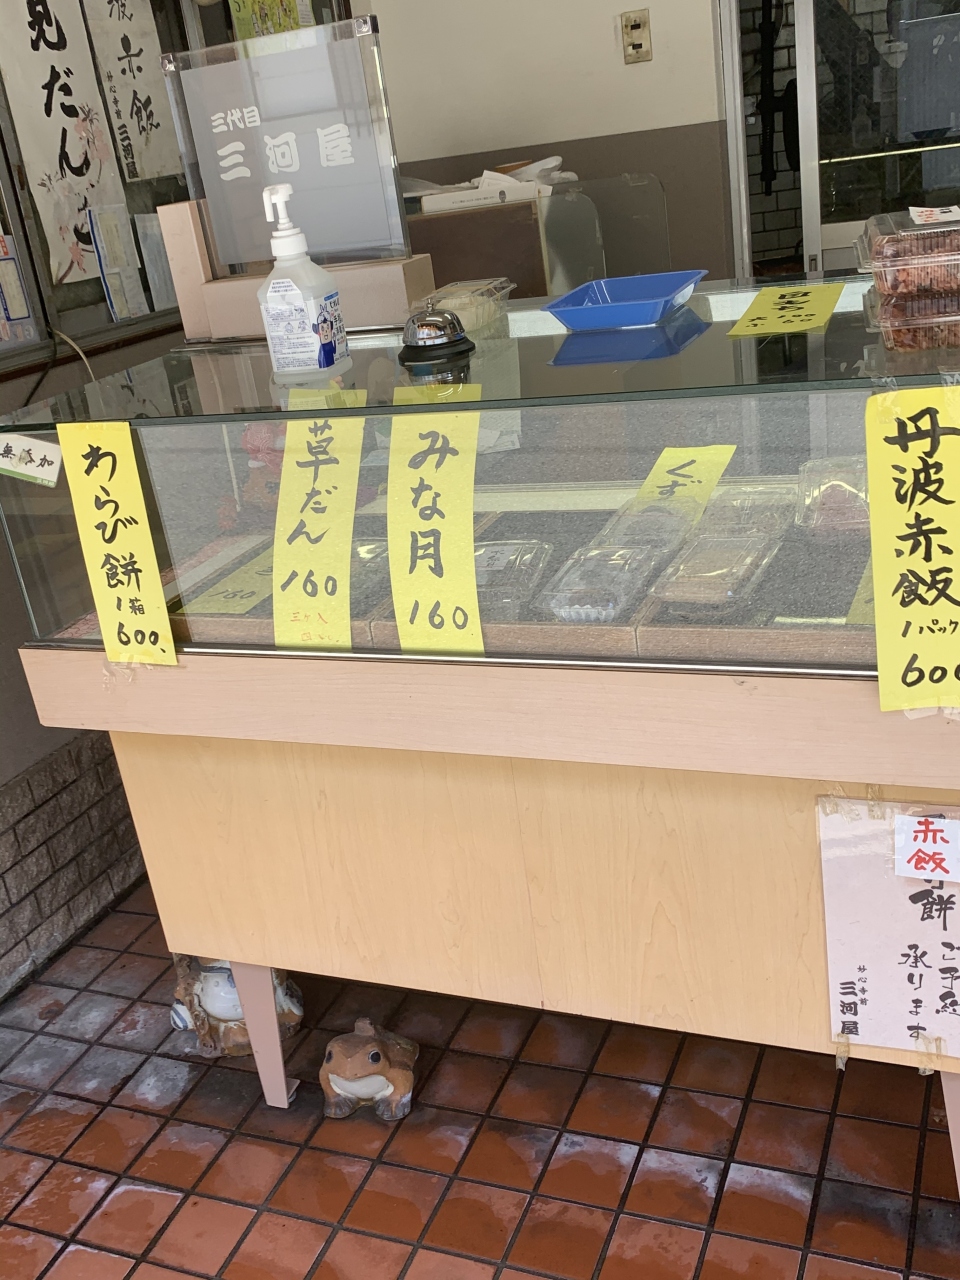 見だんご
丹波赤飯
妙心寺前
三河屋
三代目
三河屋
無添加
わらび餅
1箱
600、
草だん
160
三ヶ入
みな月
160
くず
160
丹波赤飯
1パック
600
赤飯
餅
ご予約
承ります
妙心寺前
三河屋